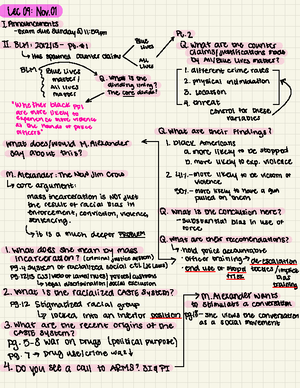 Lec 09: Nov. 01
I. Announcements
- Exam due Sunday @ 11:59pm
II. BLM - 2012/13 - Pg. 01
↳ Has spawned counter claims
Blue Lives
All Lives
BLM
Blue Lives matter/
All lives matter
Q. What is the dividing thing?
The core divide
"Whether black ppl are more likely to experience more violence at the hands of police officers"
What does/would M. Alexander say about this?
M. Alexander: The New Jim Crow
↳ core argument:
mass incarceration is not just the result of racial bias in enforcement, conviction, violence, sentencing.
↳ it is a much deeper problem
1. What does she mean by mass incarceration? (criminal justice system)
pg. 4 system of racialized social ctl
pg. 12/13
↳ legal discrimination/social exclusion
2. What is the racialized caste system?
pg. 12 Stigmatized racial group
↳ locked into an inferior position
3. What are the recent origins of the caste system?
pg. 5-8 war on drugs (political purpose)
pg. 7 → drug use/crime was ↓
4. Do you see a call to ARMS? BIG PI
Pg. 2
Q. What are the counter claims/justifications made by All/Blue lives matter?
1. different crime rates
2. physical intimidation
3. location
4. threat
control for these variables
Q. What are their findings?
1. black Americans
a. more likely to be stopped
b. more likely to exp. violence
2. 21%- more likely to be victim of violence
50%- more likely to have a gun pulled on them
Q. What is the conclusion here?
- Substantial bias in use of force
Q. What are their recommendations?
- Officer training → de-escalation
- end use of
training
→ M. Alexander wants to stimulate a conversation
pg. 18 - She views the conversation as a social movement